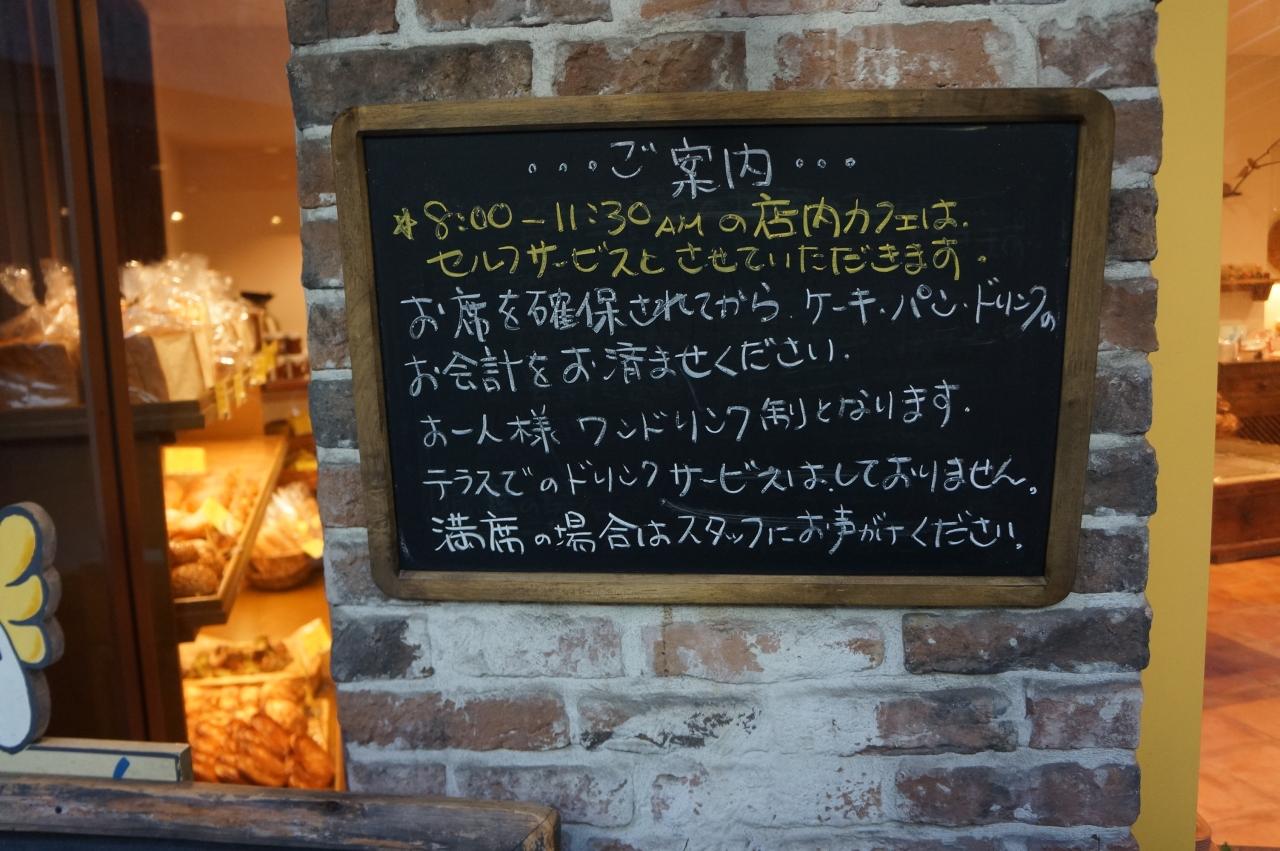 ・・・ご案内・・・
*8:00-11:30AMの店内カフェは、
セルフサービスとさせていただだきます。
お席を確保されてから、ケーキ・パン・ドリンクの
お会計をお済ませください。
お一人様 ワンドリンク制となります。
テラスでのドリンクサービスは、しておりません。
満席の場合はスタッフにお声がけください。